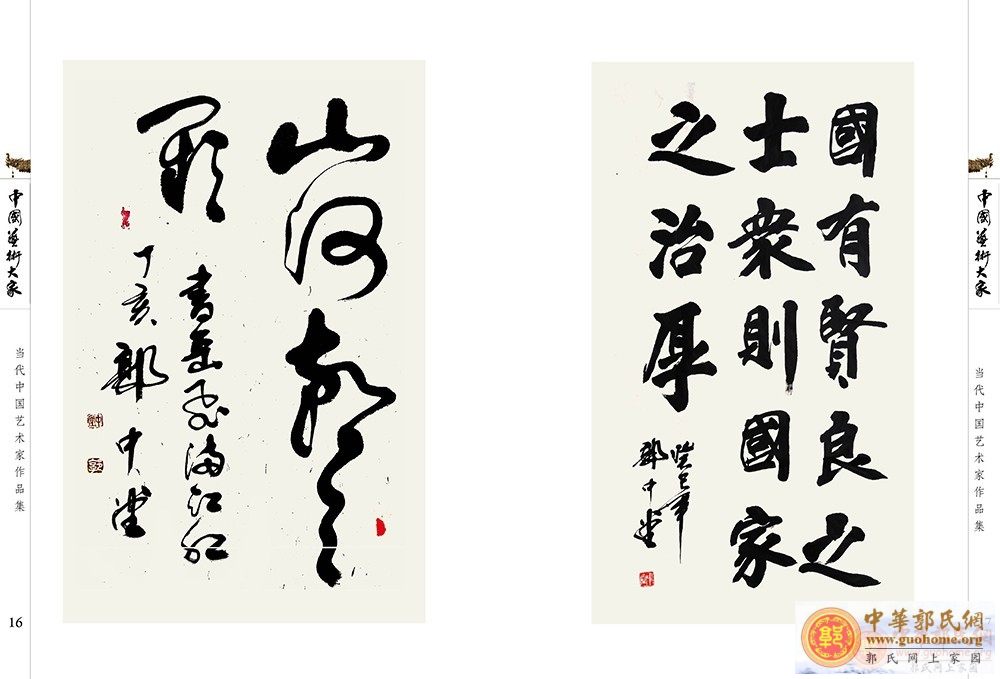 中國藝術大家
当代中国艺术家作品集
16
山河
書岳飞满江红
丁亥 郭中堂
國有賢良之
士衆則國家
之治厚
癸巳年
郭中堂
中國藝術大家
当代中国艺术家作品集
中華郭氏網
www.guohome.org
郭氏网上家园